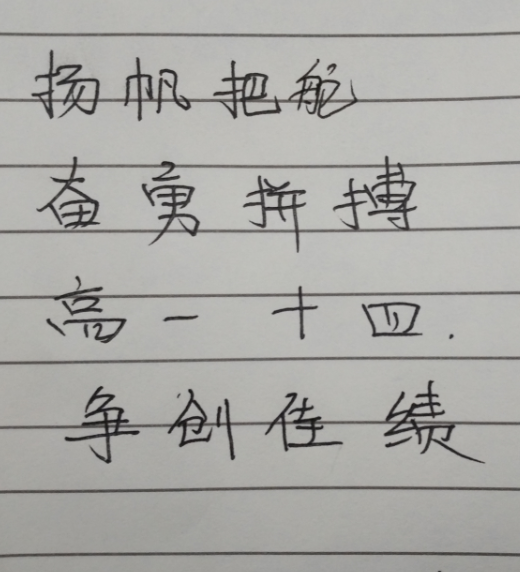 扬帆把舵
奋勇拼搏
高一十四.
争创佳绩